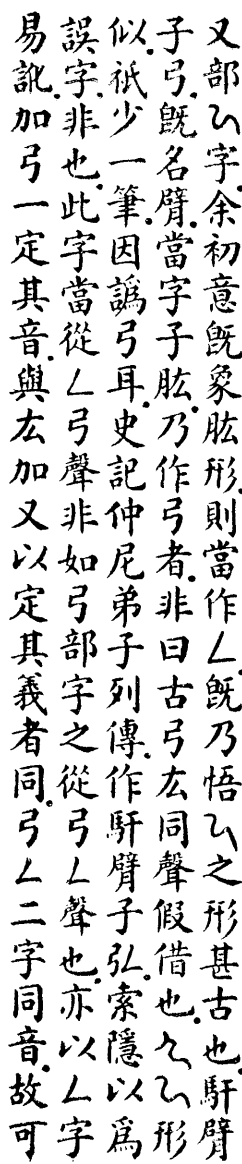 又部字。余初意旣象肱形。則當作𠃋。旣乃悟之形甚古也。馯臂
子弓。旣名臂。當字子肱。乃作弓者。非曰古弓厷同聲假借也。形
似。祇少一筆。因譌弓耳。史記仲尼弟子列傳。作馯臂子弘。索隱以爲
誤字。非也。此字當從𠃋弓聲。非如弓部字之從弓𠃋聲也。亦以𠃋字
易訛。加弓一定其音。與厷加又以定其義者同。弓𠃋二字同音。故可